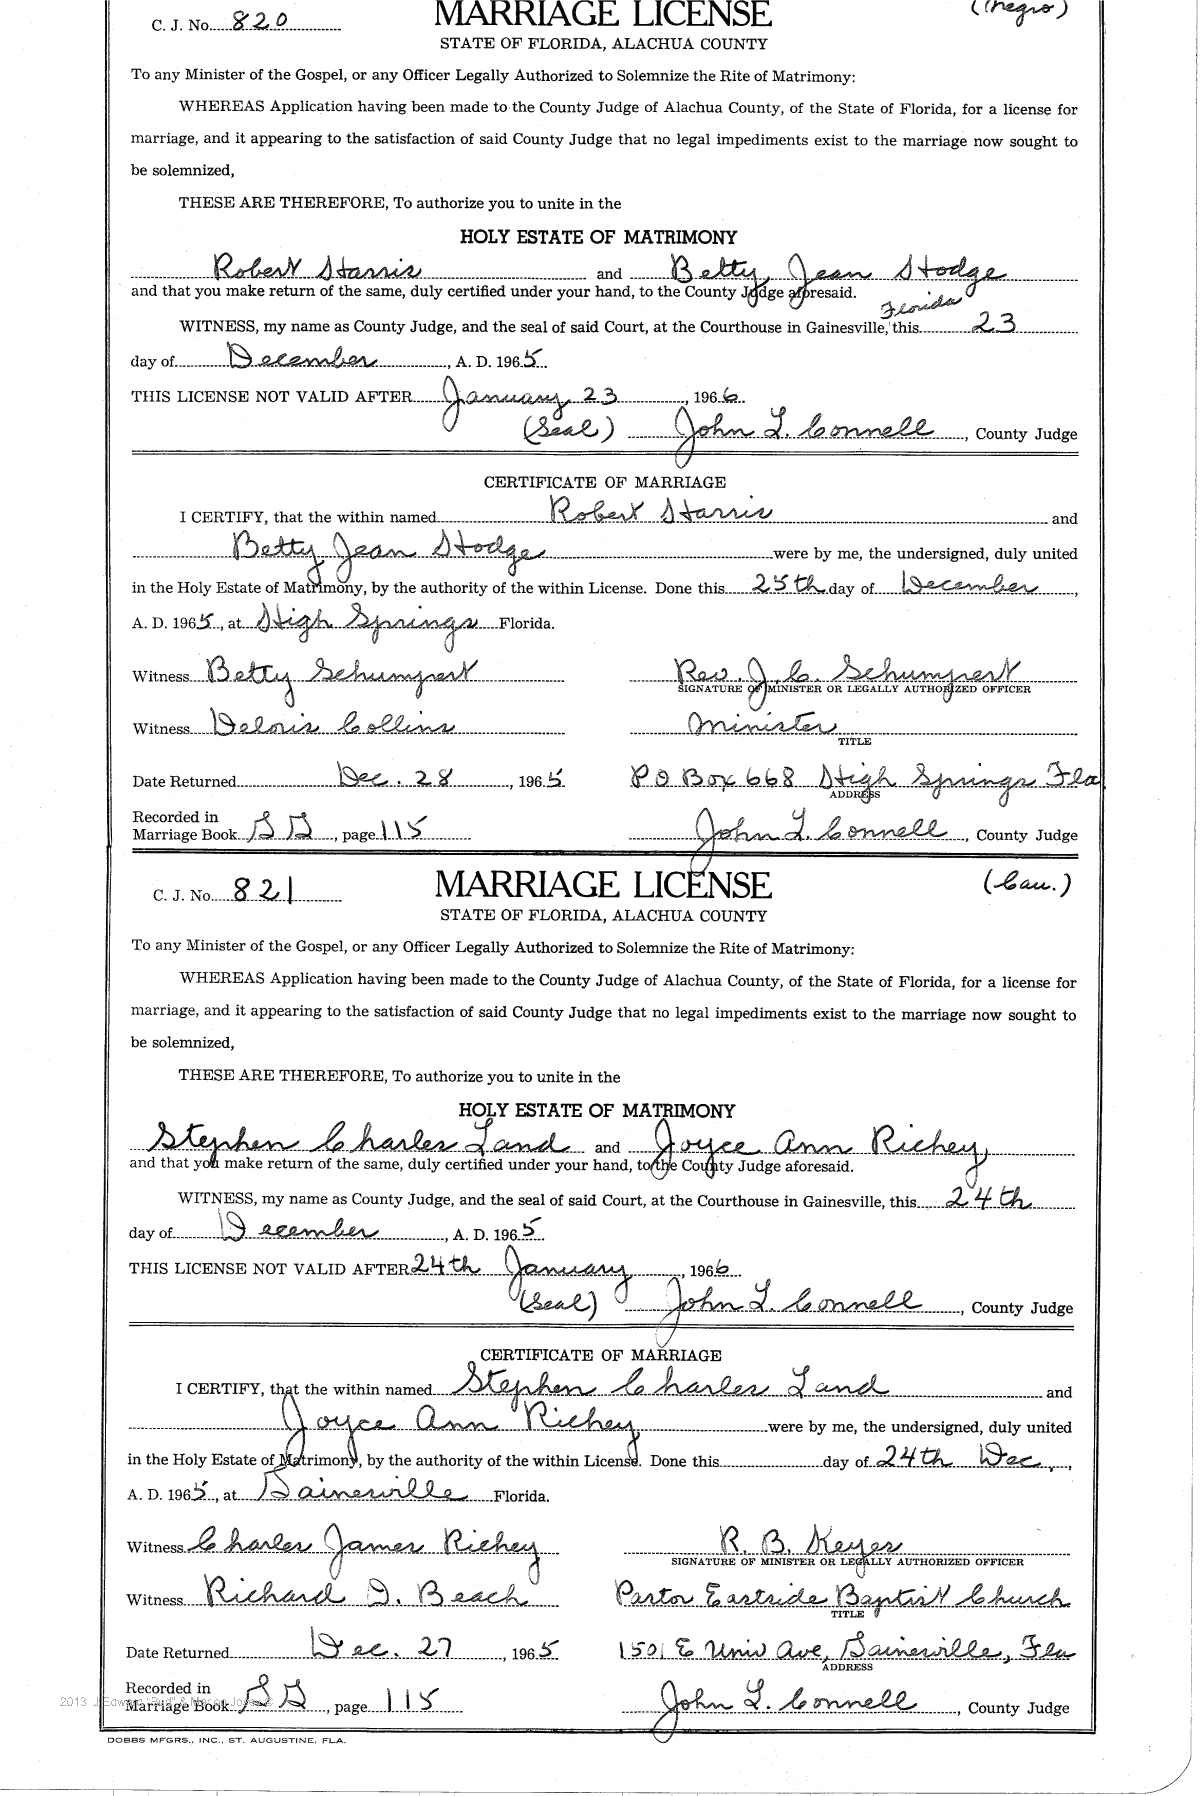 C. J. No. 820 MARRIAGE LICENSE (Negro)
STATE OF FLORIDA, ALACHUA COUNTY
To any Minister of the Gospel, or any Officer Legally Authorized to Solemnize the Rite of Matrimony:
WHEREAS Application having been made to the County Judge of Alachua County, of the State of Florida, for a license for
marriage, and it appearing to the satisfaction of said County Judge that no legal impediments exist to the marriage now sought to
be solemnized,
THESE ARE THEREFORE, To authorize you to unite in the
HOLY ESTATE OF MATRIMONY
Robert Harris and Betty Jean Hodge
and that you make return of the same, duly certified under your hand, to the County Judge aforesaid.
WITNESS, my name as County Judge, and the seal of said Court, at the Courthouse in Gainesville, Florida this 23
day of December, A. D. 1965.
THIS LICENSE NOT VALID AFTER January 23, 1966.
(Seal) John L. Connell, County Judge
CERTIFICATE OF MARRIAGE
I CERTIFY, that the within named Robert Harris and
Betty Jean Hodge were by me, the undersigned, duly united
in the Holy Estate of Matrimony, by the authority of the within License. Done this 25th day of December,
A. D. 1965, at High Springs Florida.
Witness Betty Schumpert Rev. J. C. Schumpert
SIGNATURE OF MINISTER OR LEGALLY AUTHORIZED OFFICER
Witness Deloris Collins Minister
TITLE
Date Returned Dec. 28, 1965 P O Box 668 High Springs Fla
ADDRESS
Recorded in
Marriage Book SS, page 115 John L. Connell, County Judge
C. J. No. 821 MARRIAGE LICENSE (Cau.)
STATE OF FLORIDA, ALACHUA COUNTY
To any Minister of the Gospel, or any Officer Legally Authorized to Solemnize the Rite of Matrimony:
WHEREAS Application having been made to the County Judge of Alachua County, of the State of Florida, for a license for
marriage, and it appearing to the satisfaction of said County Judge that no legal impediments exist to the marriage now sought to
be solemnized,
THESE ARE THEREFORE, To authorize you to unite in the
HOLY ESTATE OF MATRIMONY
Stephen Charles Land and Joyce Ann Richey
and that you make return of the same, duly certified under your hand, to the County Judge aforesaid.
WITNESS, my name as County Judge, and the seal of said Court, at the Courthouse in Gainesville, this 24th
day of December, A. D. 1965.
THIS LICENSE NOT VALID AFTER 24th January, 1966.
(Seal) John L. Connell, County Judge
CERTIFICATE OF MARRIAGE
I CERTIFY, that the within named Stephen Charles Land and
Joyce Ann Richey were by me, the undersigned, duly united
in the Holy Estate of Matrimony, by the authority of the within License. Done this day of 24th Dec.,
A. D. 1965, at Gainesville Florida.
Witness Charles James Richey R. B. Keyes
SIGNATURE OF MINISTER OR LEGALLY AUTHORIZED OFFICER
Witness Richard D. Beach Pastor Eastside Baptist Church
TITLE
Date Returned Dec. 27, 1965 1501 E Univ Ave, Gainesville, Fla
ADDRESS
Recorded in
Marriage Book, page 115 John L. Connell, County Judge
2013 J Edward "Bud" &
DOBBS MFGRS., INC., ST. AUGUSTINE, FLA.